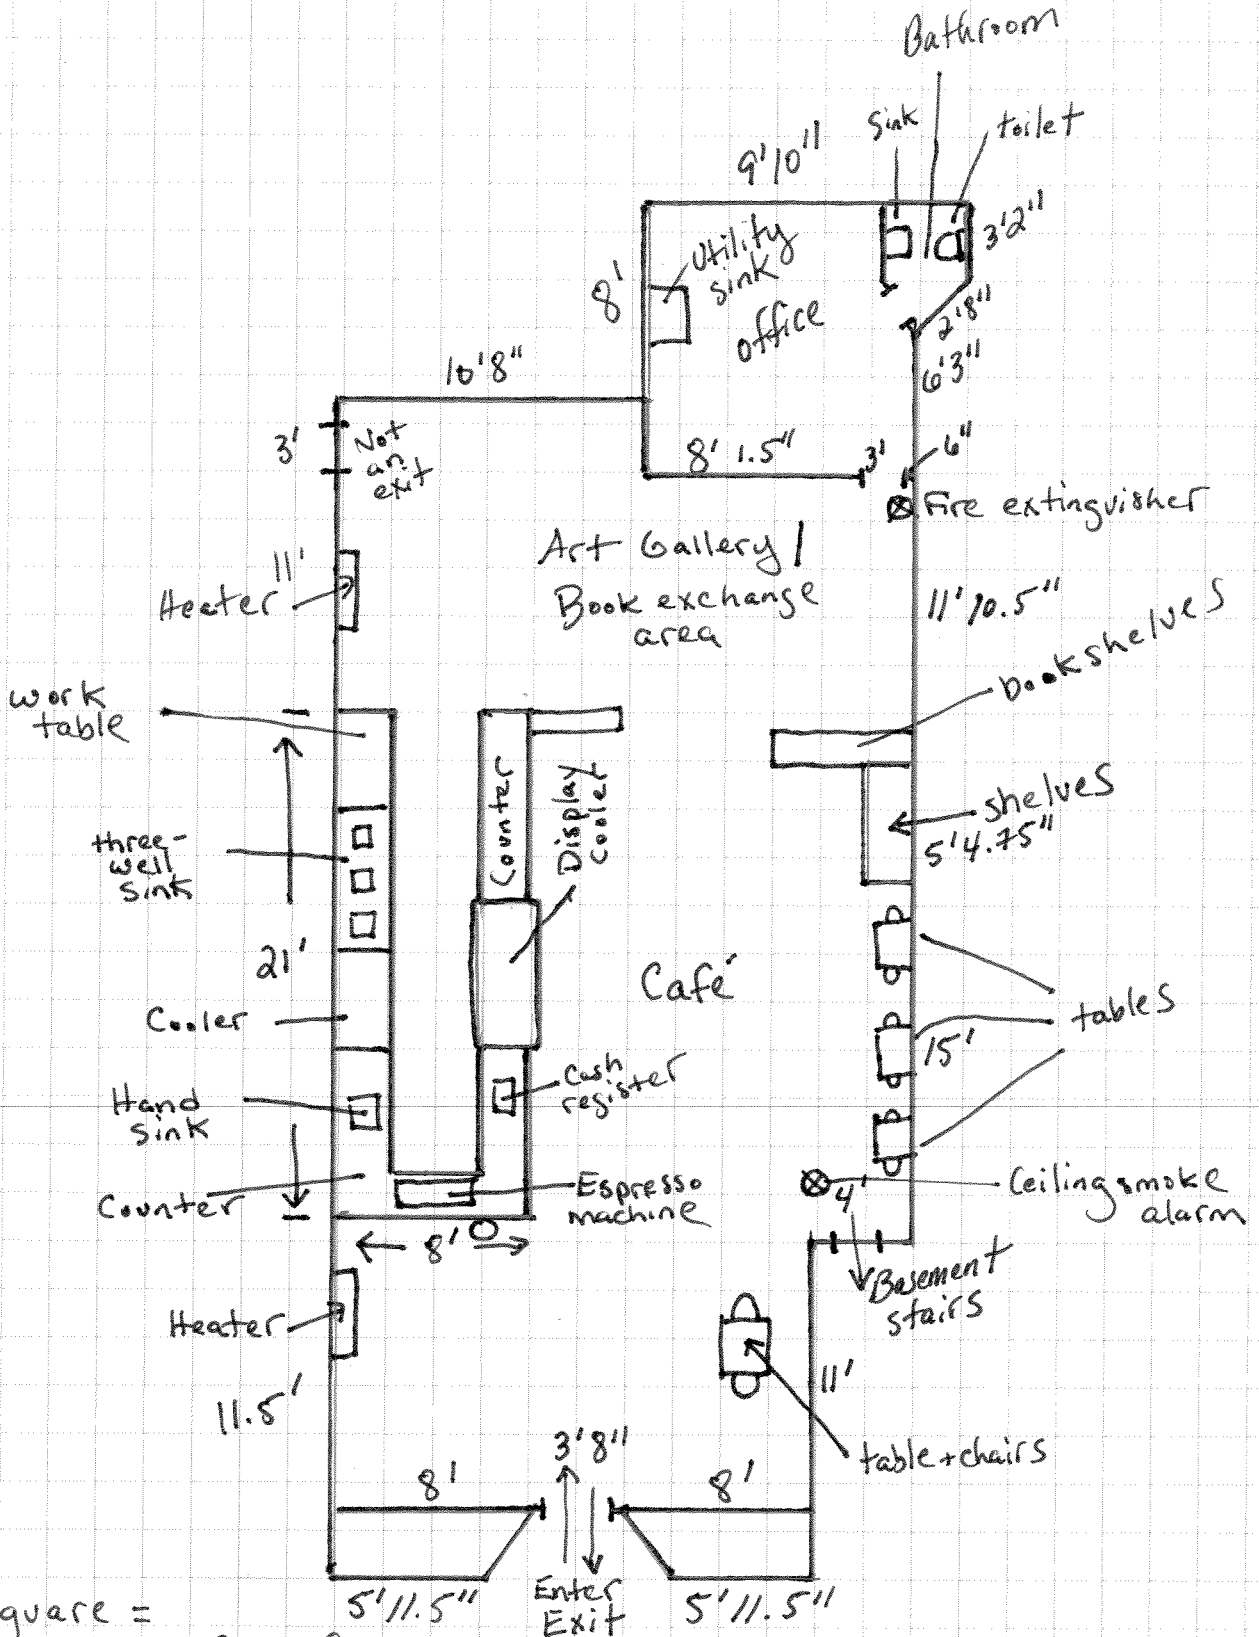 Bathroom
sink
toilet
9'10"
3'2"
utility
sink
8'
office
2'8"
6'3"
10'8"
3'
Not
an
exit
8' 1.5"
3'
6"
Fire extinguisher
Art Gallery /
Book exchange
area
11'
Heater
11'10.5"
bookshelves
work
table
Counter
Display
cooler
shelves
5'4.75"
three-
well
sink
21'
Café
Cooler
tables
15'
Cash
register
Hand
sink
Counter
Espresso
machine
4'
Ceiling smoke
alarm
8'
Basement
stairs
Heater
11'
11.5'
3'8"
table + chairs
8'
8'
5'11.5"
Enter
Exit
5'11.5"
quare =